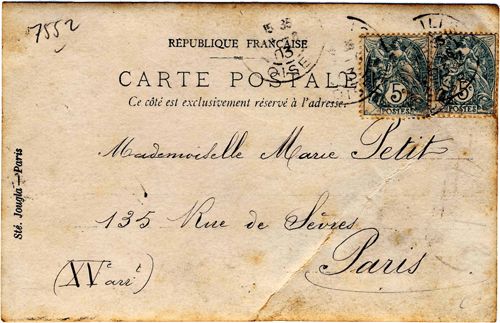 7552
15 35
OISE
RÉPUBLIQUE FRANÇAISE
CARTE POSTALE
Ce côté est exclusivement réservé à l'adresse.
5c 5c
POSTES POSTES
Mademoiselle Marie Petit
135 Rue de Sèvres
Paris
(XVe arrt)
Sté. Jougla—Paris